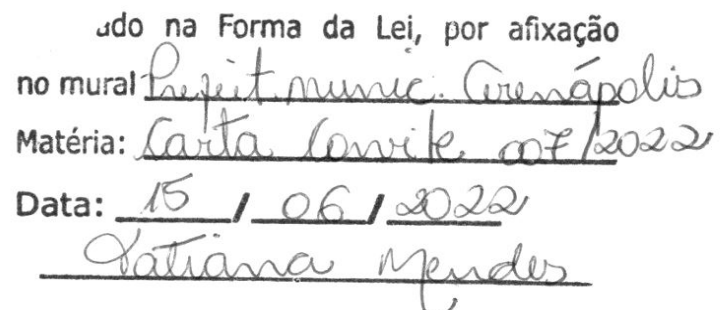 ado na Forma da Lei, por afixação
no mural Prefeit munic. Arenápolis
Matéria: Carta Convite 007/2022
Data: 15 / 06 / 2022
Tatiana Mendes